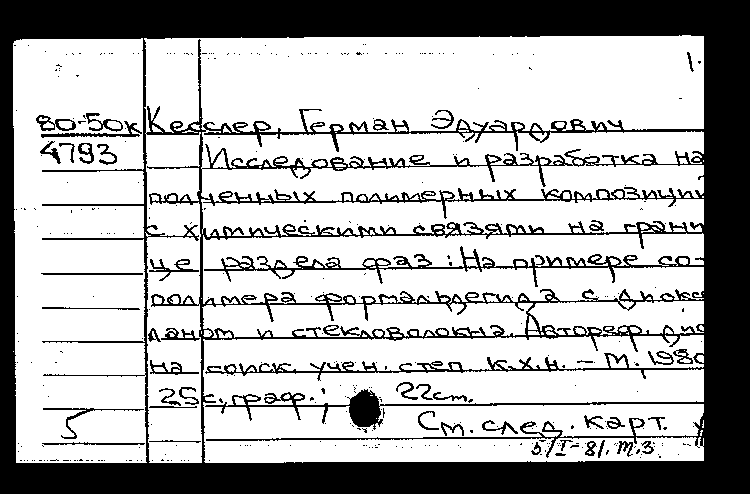 1.
80-50к Кесслер, Герман Эдуардович
4793 Исследование и разработка на
полненных полимерных композиций
с химическими связями на грани
це раздела фаз: На примере со-
полимера формальдегида с диокс
ланом и стекловолокна. Автореф. дис
на соиск. учен. степ к.х.н. - М, 1980
25с, граф.; 22см.
5 См. след. карт.
5/I-81. т.3